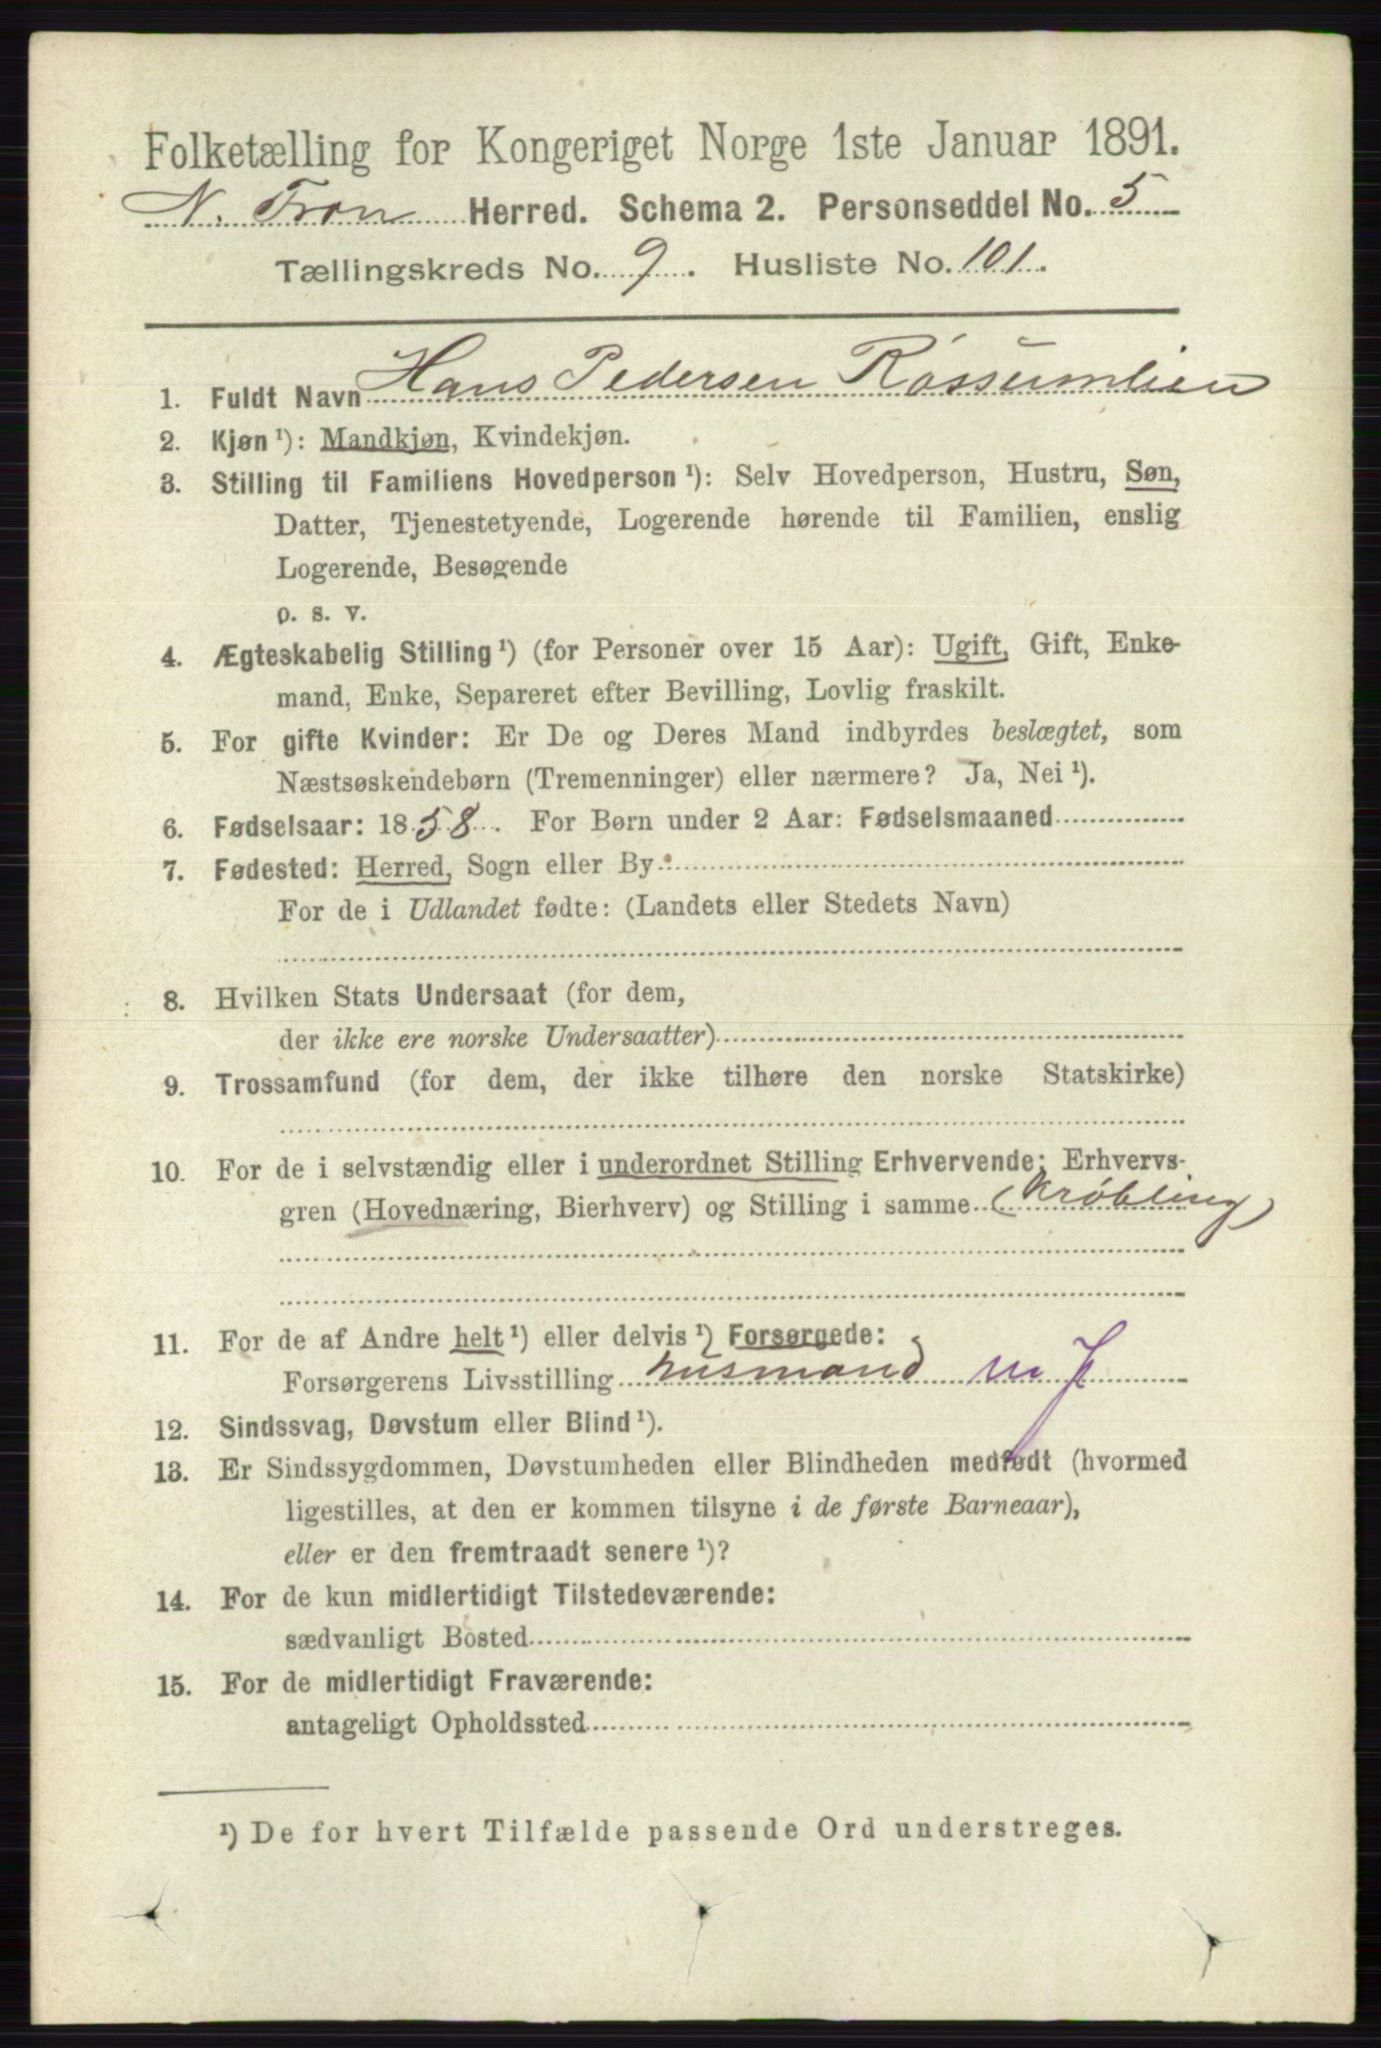 Folketælling for Kongeriget Norge 1ste Januar 1891.
N. Fron Herred. Schema 2. Personseddel No. 5
Tællingskreds No. 9. Husliste No. 101.
1. Fuldt Navn Hans Pedersen Røssumlien
2. Kjøn ¹): Mandkjøn, Kvindekjøn.
3. Stilling til Familiens Hovedperson ¹): Selv Hovedperson, Hustru, Søn,
Datter, Tjenestetyende, Logerende hørende til Familien, enslig
Logerende, Besøgende
o. s. v.
4. Ægteskabelig Stilling ¹) (for Personer over 15 Aar): Ugift, Gift, Enke-
mand, Enke, Separeret efter Bevilling, Lovlig fraskilt.
5. For gifte Kvinder: Er De og Deres Mand indbyrdes beslægtet, som
Næstsøskendebørn (Tremenninger) eller nærmere? Ja, Nei ¹).
6. Fødselsaar: 1858. For Børn under 2 Aar: Fødselsmaaned
7. Fødested: Herred, Sogn eller By
For de i Udlandet fødte: (Landets eller Stedets Navn)
8. Hvilken Stats Undersaat (for dem,
der ikke ere norske Undersaatter)
9. Trossamfund (for dem, der ikke tilhøre den norske Statskirke)
10. For de i selvstændig eller i underordnet Stilling Erhvervende: Erhvervs-
gren (Hovednæring, Bierhverv) og Stilling i samme (Krøbling)
11. For de af Andre helt ¹) eller delvis ¹) Forsørgede:
Forsørgerens Livsstilling husmand m J
12. Sindssvag, Døvstum eller Blind ¹).
13. Er Sindssygdommen, Døvstumheden eller Blindheden medfødt (hvormed
ligestilles, at den er kommen tilsyne i de første Barneaar),
eller er den fremtraadt senere ¹)?
14. For de kun midlertidigt Tilstedeværende:
sædvanligt Bosted
15. For de midlertidigt Fraværende:
antageligt Opholdssted
¹) De for hvert Tilfælde passende Ord understreges.